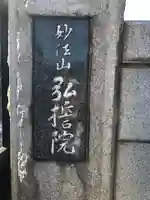 妙法山
弘誓院